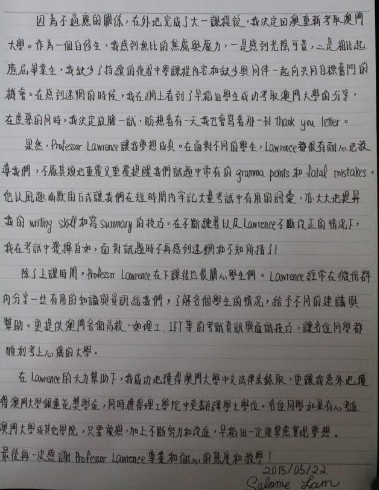 因為不適應的關係,在外地完成了大一課程後,我決定回澳重新考取澳門
大學。作為一個自修生,我感到無比的焦慮與壓力,一是感到光陰可貴,二是相比起
應屆畢業生,我缺少了指導的夜習中學課程內容和缺少與同伴一起向共同目標奮鬥的
機會。在感到迷惘的時候,我在網上看到了早稻田學生成功考取澳門大學的分享,
在羨慕的同時,我決定放膽一試,盼想着有一天我也會寫着那一封 thank you letter。
果然,Professor Lawrence讓我夢想成真。在面對不同的學生,Lawrence都很有耐心地教
導我們,不厭其煩地重覆又重覆提醒我們試題中常有的 gramma points 和 fatal mistakes。
他以風趣幽默的方式讓我們在短時間內牢記大量考試中有用的詞彙,亦大大地提昇
我的 writing skill 和寫 summary 的技巧。在不斷練習以及 Lawrence 不斷改正的情況下,
我在考試中發揮自如,面對試題時不再感到迷惘和不知所措了!
除了上課時間,Professor Lawrence 在下課後也很關心學生們。Lawrence 經常在微信群
內分享一些有用的知識與資訊給我們,了解各個學生的情況,給予不同的建議與
幫助。更提供澳門各個高校,如理工、IFT等的考試資訊與面試技巧,讓各位同學都
順利考上心儀的大學。
在 Lawrence 的大力幫助下,我成功地獲得澳門大學中文法律系錄取,更讓我意外地獲
得澳門大學錄取獎學金,同時獲得理工學院中英翻譯學士學位。各位同學如果有心考進
澳門大學或其他學院,只要敢想,加上不斷努力和改進,早稻田一定能幫您實現夢想。
最後再一次感謝 Professor Lawrence 專業和細心的態度和教學!
2015/05/22
Salome Lam